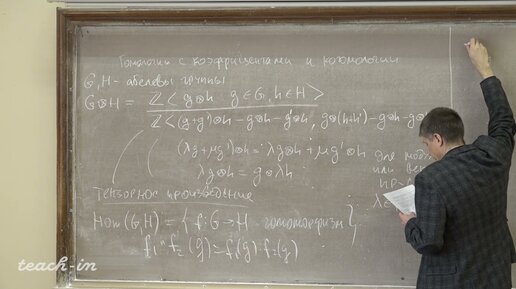 Гомологии с коэффициентами и когомологии
G, H - абелевы группы
G⊗H = ℤ< g⊗h g∈G, h∈H >
ℤ<(g+g')⊗h - g⊗h - g'⊗h, g⊗(h+h') - g⊗h - g⊗
(λg+μg')⊗h = λg⊗h + μg'⊗h
λg⊗h = g⊗λh
для
или
Тензорное произведение
Hom(G,H) = { f: G→H гомоморфизм }
(g) = f₁(g)·f₂(g)
teach-in